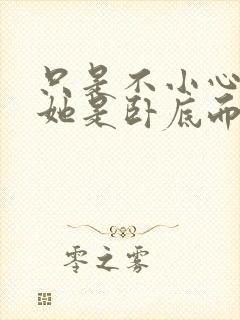 只是不小心
她是卧底而
零之雾